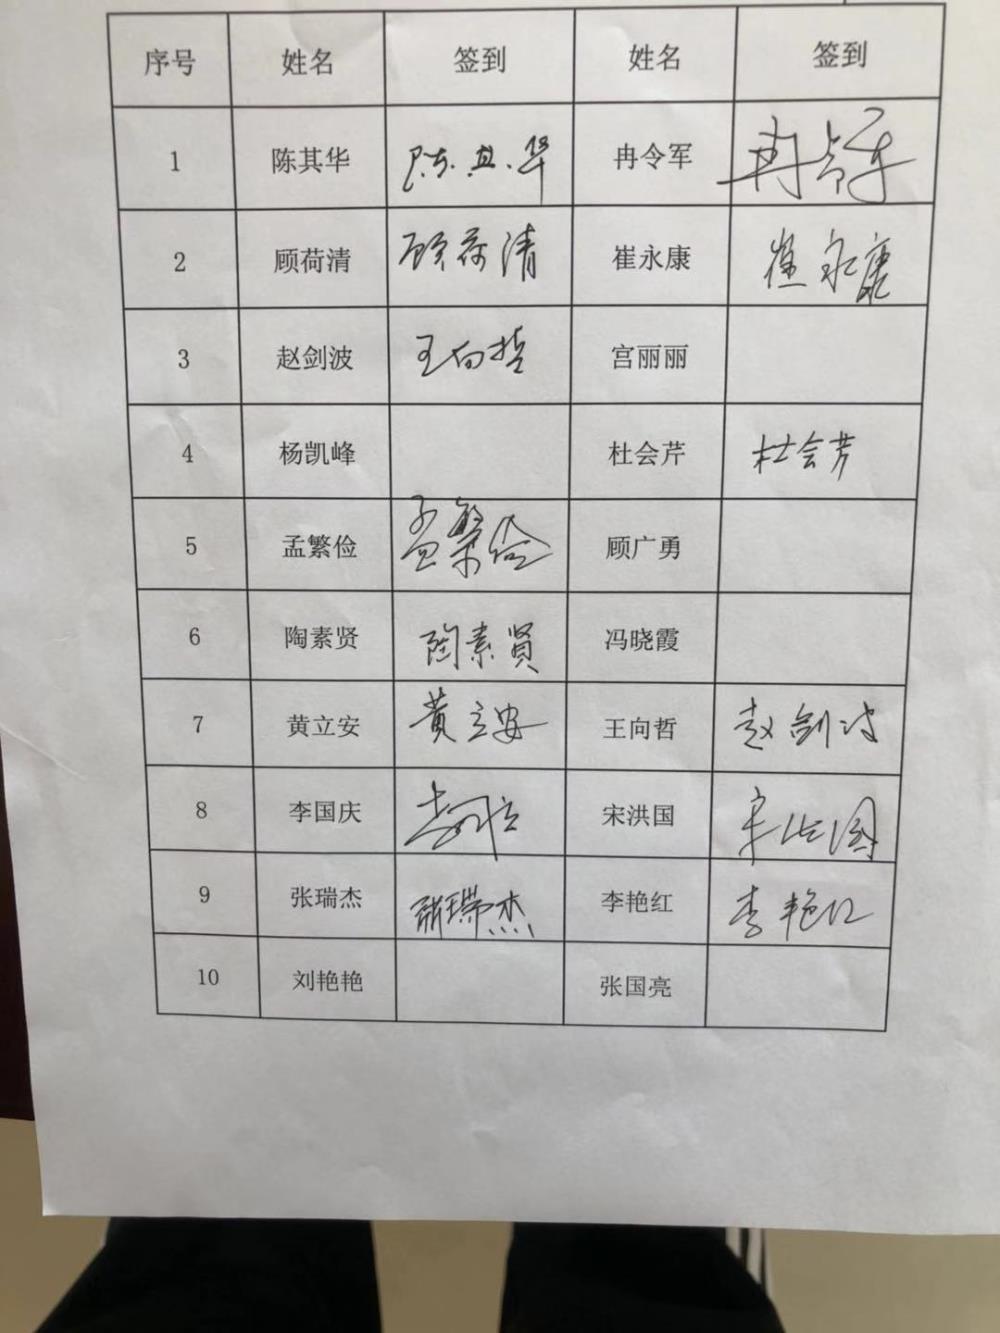 序号 姓名 签到 姓名 签到
1 陈其华 陈其华 冉令军 冉令军
2 顾荷清 顾荷清 崔永康 崔永康
3 赵剑波 王向哲 宫丽丽
4 杨凯峰 杜会芹 杜会芹
5 孟繁俭 孟繁俭 顾广勇
6 陶素贤 陶素賢 冯晓霞
7 黄立安 黄立安 王向哲 赵剑波
8 李国庆 李国庆 宋洪国 宋洪国
9 张瑞杰 张瑞杰 李艳红 李艳红
10 刘艳艳 张国亮